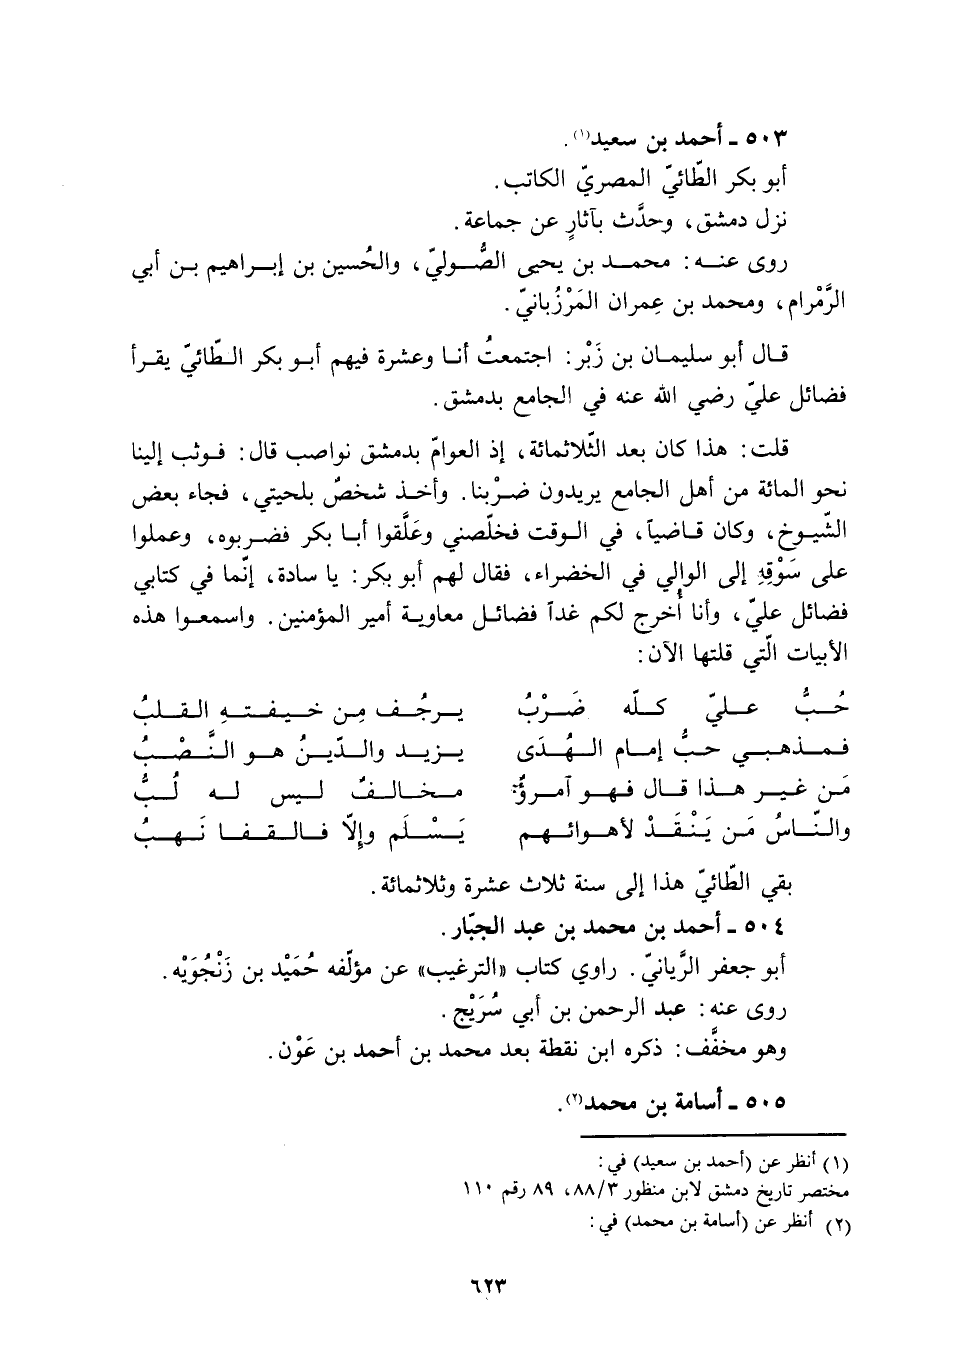 ٥٠٣ ـ أحمد بن سعيد(١).
أبو بكر الطّائيّ المصريّ الكاتب.
نزل دمشق، وحدَّث بآثارٍ عن جماعة.
روى عنه: محمد بن يحيى الصُّوليّ، والحُسين بن إبراهيم بن أبي
الرَّمْرام، ومحمد بن عِمران المَرْزُبانيّ.
قال أبو سليمان بن زَبْر: اجتمعتُ أنا وعشرة فيهم أبو بكر الطّائيّ يقرأ
فضائل عليّ رضي الله عنه في الجامع بدمشق.
قلت: هذا كان بعد الثّلاثمائة، إذ العوامّ بدمشق نواصب قال: فوثب إلينا
نحو المائة من أهل الجامع يريدون ضرْبنا. وأخذ شخصٌ بلحيتي، فجاء بعض
الشّيوخ، وكان قاضياً، في الوقت فخلّصني وعَلَّقوا أبا بكر فضربوه، وعملوا
على سَوْقِهِ إلى الوالي في الخضراء، فقال لهم أبو بكر: يا سادة، إنّما في كتابي
فضائل عليّ، وأنا أُخرج لكم غداً فضائل معاوية أمير المؤمنين. واسمعوا هذه
الأبيات الّتي قلتها الآن:
حُبُّ عليّ كلّه ضَرْبُ يرجُف مِن خيفتهِ القلبُ
فمذهبي حبُّ إمام الهُدَى يزيد والدّينُ هو النَّصْبُ
مَن غير هذا قال فهو آمرؤٌ مخالفٌ ليس له لُبُّ
والنّاسُ مَن يَنْقَدْ لأهوائهم يَسْلَم وإلّا فالقفا نَهبُ
بقي الطّائيّ هذا إلى سنة ثلاث عشرة وثلاثمائة.
٥٠٤ ـ أحمد بن محمد بن عبد الجبّار.
أبو جعفر الرَّيانيّ. راوي كتاب «الترغيب» عن مؤلّفه حُمَيْد بن زَنْجُوَيْه.
روى عنه: عبد الرحمن بن أبي سُرَيْج.
وهو مخفَّف: ذكره ابن نقطة بعد محمد بن أحمد بن عَوْن.
٥٠٥ ـ أسامة بن محمد(٢).
(١) أنظر عن (أحمد بن سعيد) في:
مختصر تاريخ دمشق لابن منظور ٨٨/٣، ٨٩ رقم ١١٠
(٢) أنظر عن (أسامة بن محمد) في:
٦٢٣